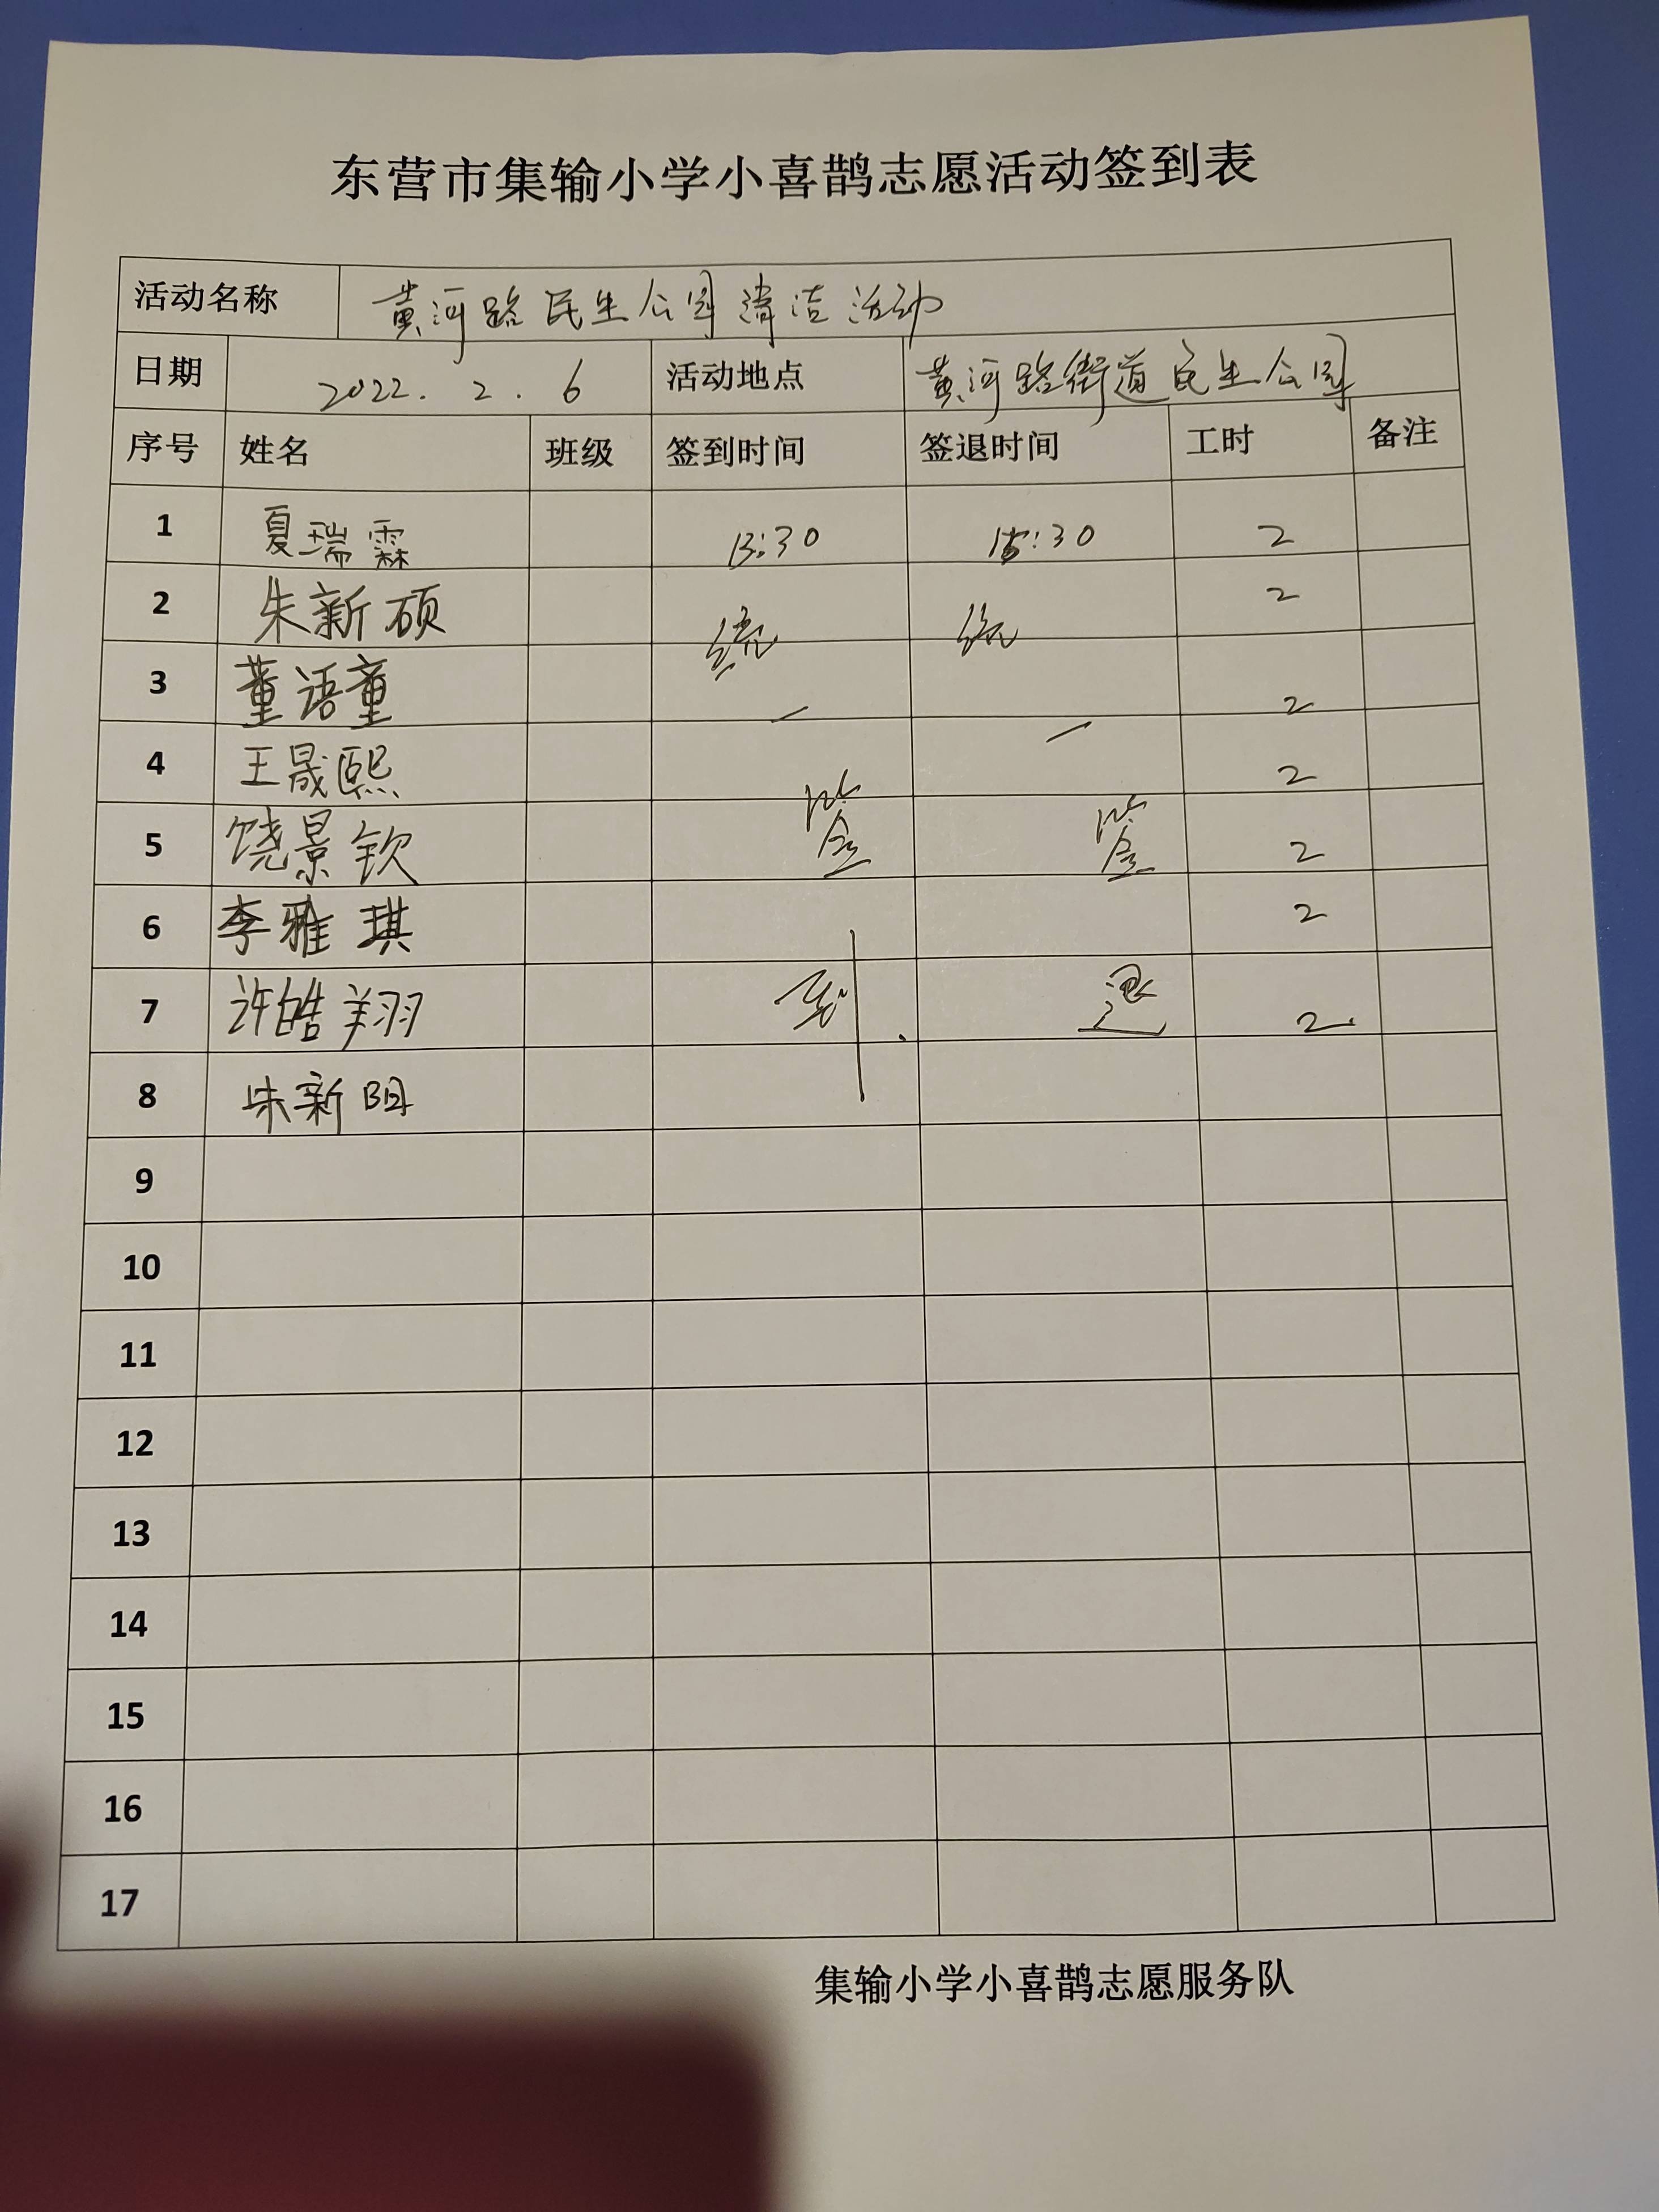 东营市集输小学小喜鹊志愿活动签到表
活动名称 黄河路民生公园清洁活动
日期 2022.2.6 活动地点 黄河路街道民生公园
序号 姓名 班级 签到时间 签退时间 工时 备注
1 夏瑞霖 13:30 15:30 2
2 朱新硕 统 统 2
3 董语童 一 2
4 王晟熙 一 2
5 饶景钦 签 签 2
6 李雅琪 2
7 许皓翔 到 退 2
8 朱新阳
9
10
11
12
13
14
15
16
17
集输小学小喜鹊志愿服务队